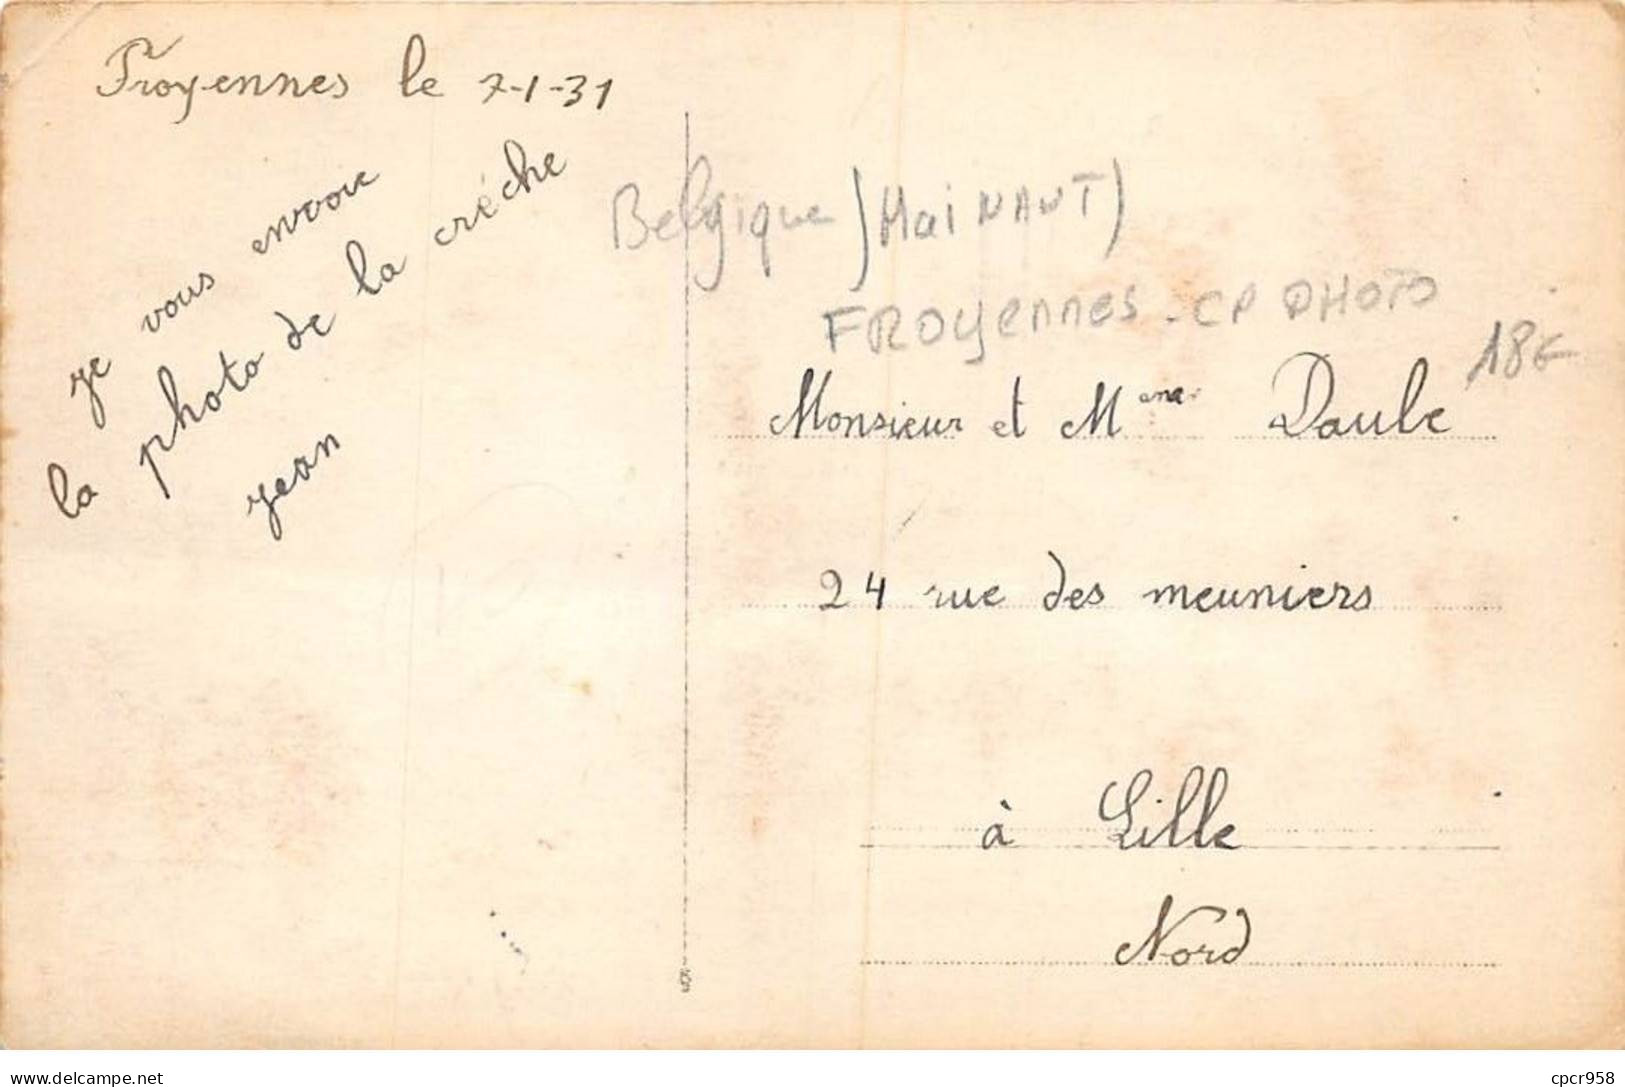 Froyennes le 7-1-31
je vous envoie
la photo de la crèche
jean
Belgique (Hainaut)
FROYENNES - CP PHOTO
18€
Monsieur et Mme Daule
24 rue des meuniers
à Lille
Nord
www.delcampe.net
cpcr958